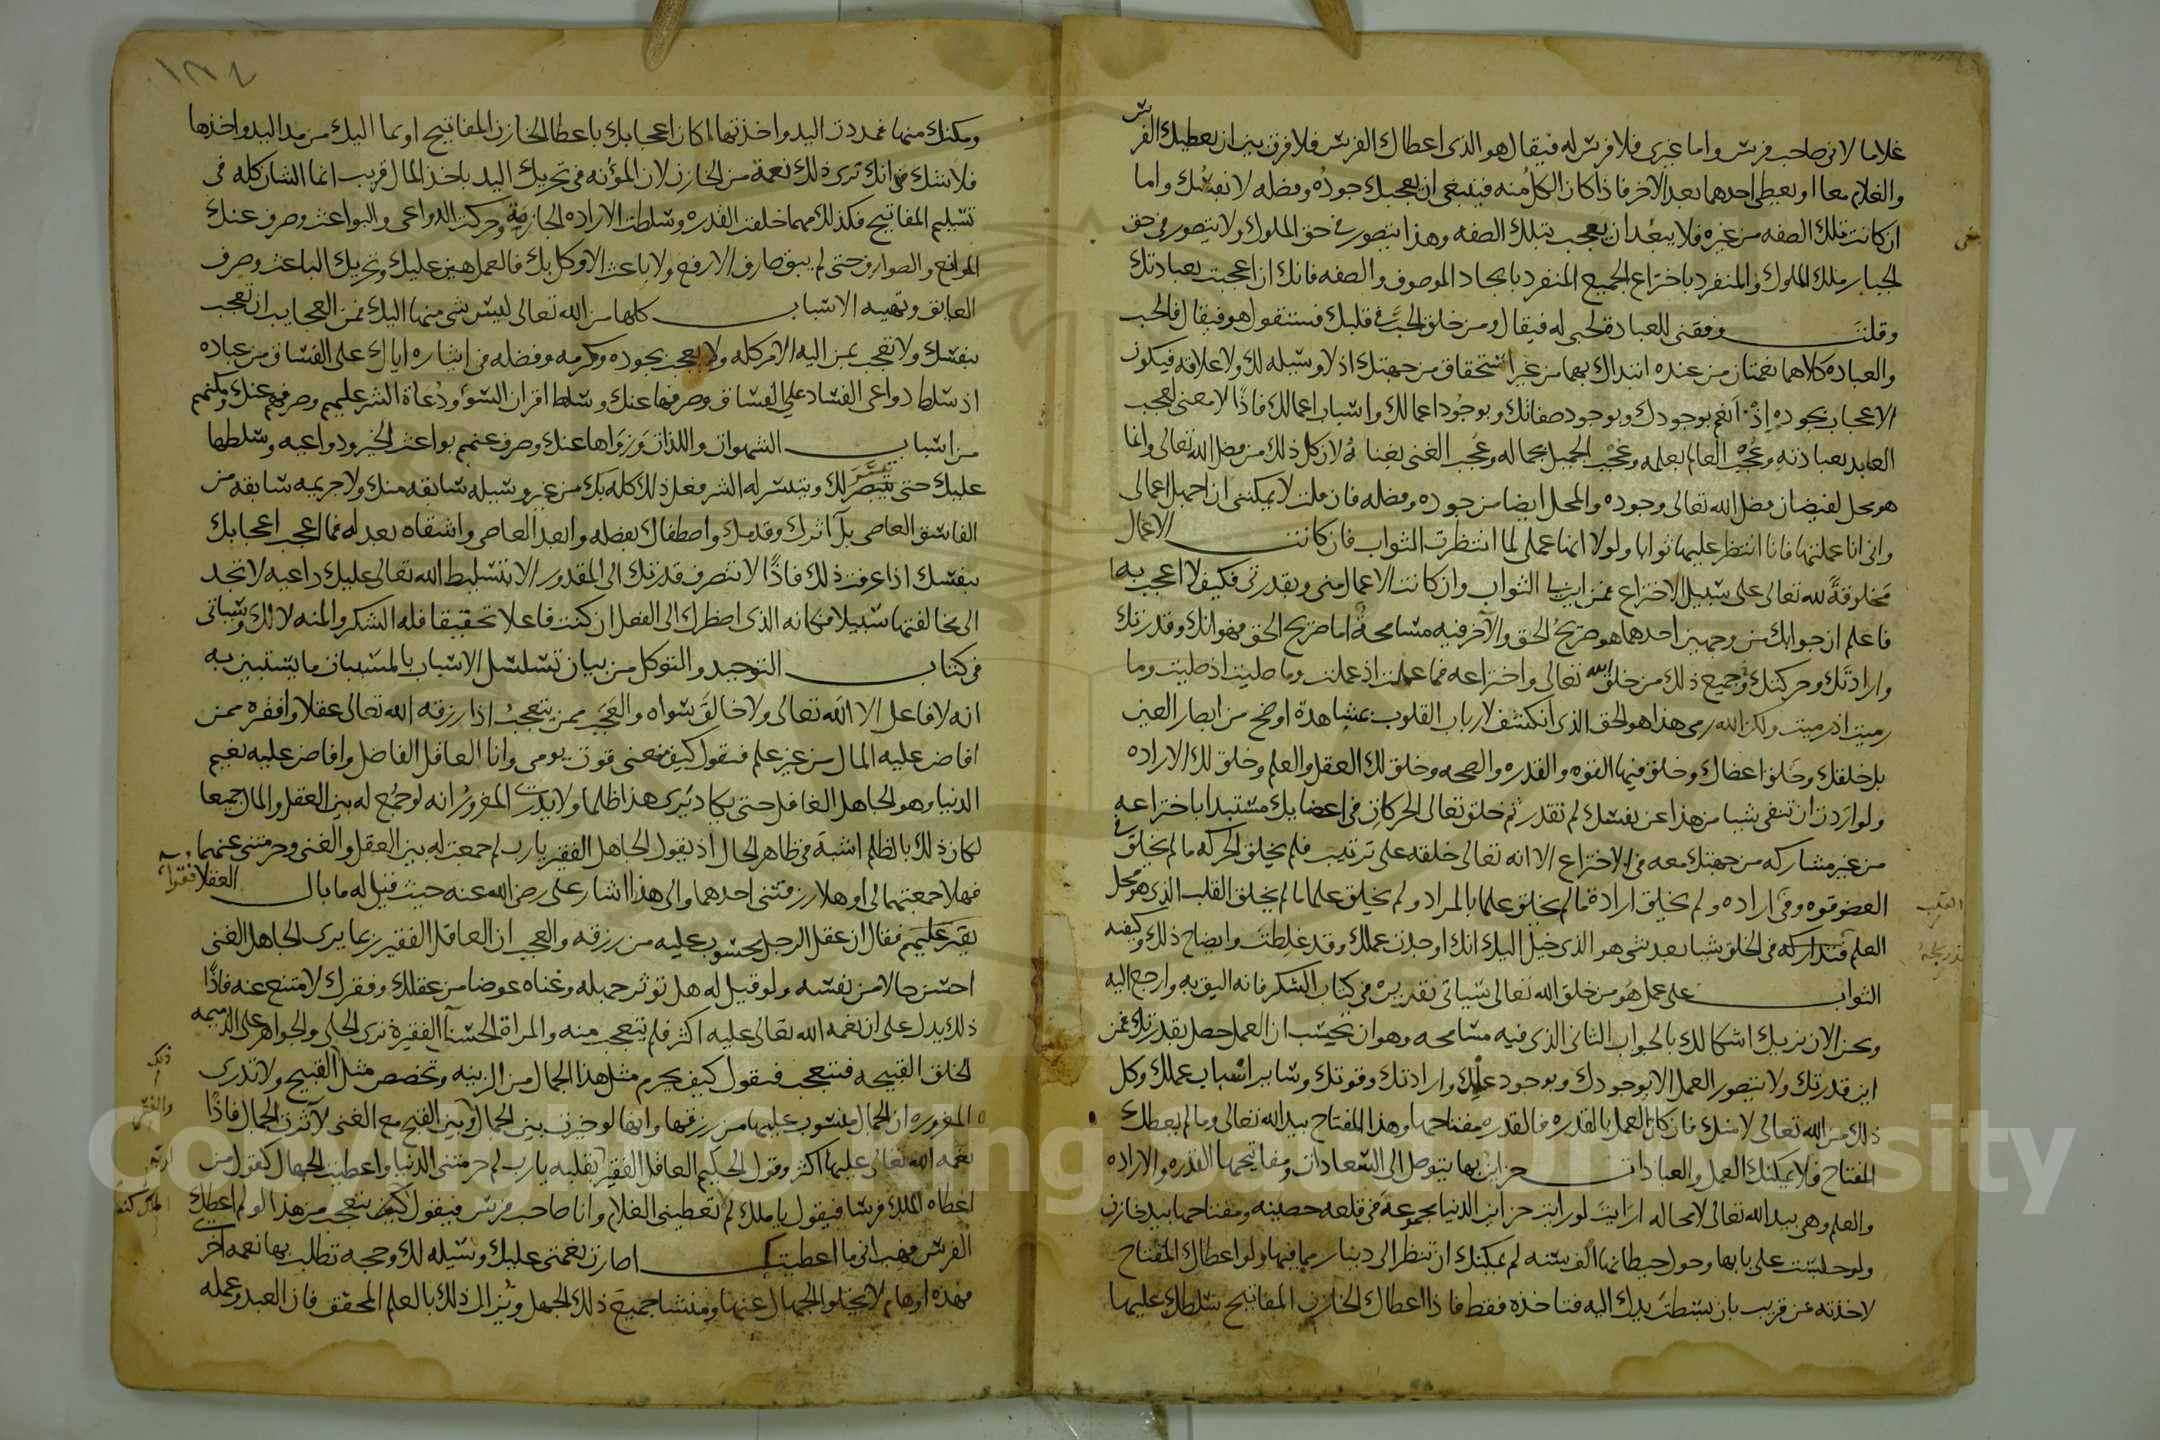 غلاما لاني صاحب فرس واما غيري فلا فرس له فيقال هو الذي اعطاك الفرس فلا فرق بين ان يعطيك الفرس
والغلام معا او يعطي احدهما بعد الاخر فاذا كان الكل منه فينبغي ان يعجبك جوده وفضله لا نفسك واما
ان كانت تلك الصفه من غيره فلا يبعد ان يعجب بتلك الصفه وهذا يتصور في حق الملوك ولا يتصور في حق
الجبار ملك الملوك والمنفرد باختراع الجميع المنفرد بايجاد الموصوف والصفه فانك ان اعجبت بعبادتك
وقلت وفقني للعبادة لحبي له فيقال ومن خلق الحب في قلبك فستقول هو فيقال فالحب
والعباده كلاهما نعمتان من عنده ابتداك بهما من غير استحقاق من جهتك اذ لا وسيله لك ولا علاقه فيكون
الاعجاب بجوده اذ انعم بوجودك وبوجود صفاتك وبوجود اعمالك واسباب اعمالك فاذا لا معنى لعجب
العابد بعبادته وعجب العالم بعلمه وعجب الجميل بجماله وعجب الغني بغناه لان كل ذلك من فضل الله تعالى وانما
هو محل لفيضان فضل الله تعالى وجوده والمحل ايضا من جوده وفضله فان قلت لا يمكنني ان اجهل اعمالي
واني انا عملتها فانا انتظر عليها ثوابا ولولا انها عملي لما انتظرت الثواب فان كانت الاعمال
مخلوقة لله تعالى على سبيل الاختراع فمن اين لي الثواب وان كانت الاعمال مني وبقدرتي فكيف لا اعجب بها
فاعلم ان جوابك من وجهين احدهما هو صريح الحق والآخر فيه مسامحة اما صريح الحق فهو انك وقدرتك
وارادتك وحركتك وجميع ذلك من خلق الله تعالى واختراعه فما عملت اذ عملت وما صليت اذ صليت وما
رميت اذ رميت ولكن الله رمى هذا هو الحق الذي انكشف لارباب القلوب بمشاهدة اوضح من ابصار العين
بل خلقك وخلق اعضاك وخلق فيها القوه والقدره والصحه وخلق لك العقل والعلم وخلق لك الاراده
ولو اردت ان تنفي شيا من هذا عن نفسك لم تقدر ثم خلق تعالى الحركات في اعضايك مستبدا باختراعه
من غير مشاركه من جهتك معه في الاختراع الا انه تعالى خلقه على ترتيب فلم يخلق الحركه ما لم يخلق في
العضو قوه وفي اراده ولم يخلق ارادة ما لم يخلق علما بالمراد ولم يخلق علما ما لم يخلق القلب الذي هو محل
العلم فتداركه في الخلق شيا بعد شي هو الذي خيل اليك انك اوجدت عملك وقد غلطت وايضاح ذلك وكيفيه
الثواب على عمل هو من خلق الله تعالى سياتي تقديره في كتاب الشكر فانه اليق به وارجع اليه
ونحن الان نزيل اشكالك بالجواب الثاني الذي فيه مسامحه وهو ان تحسب ان العمل حصل بقدرتك فمن
اين قدرتك ولا يتصور العمل الا بوجودك وبوجود عملك وارادتك وقوتك وساير اسباب عملك وكل
ذلك من الله تعالى لا منك فان كان العمل بالقدره فالقدره مفتاحها وهذا المفتاح بيد الله تعالى وما لم يعطك
المفتاح فلا يمكنك العمل والعبادات خزاين بها يتوصل الى السعادات ومفاتيحها القدره والاراده
والعلم وهي بيد الله تعالى لا محاله ارايت لو رايت خزاين الدنيا مجموعة في قلعه حصينه ومفتاحها بيد خازن
ولو جلست على بابها وحول حيطانها الف سنه لم يمكنك ان تنظر الى دينار مما فيها ولو اعطاك المفتاح
لاخذته عن قريب بان بسطت يدك اليه فتاخذه فقط فاذا اعطاك الخازن المفاتيح سلطك عليها
القلب
ومكنك منها فمددت اليد واخذتها كان اعجابك باعطا الخازن المفاتيح او بما اليك من مد اليد واخذها
فلا شك في انك ترى ذلك نعمة من الخازن لان المؤنه في تحريك اليد باخذ المال قريب انما الشان كله في
تسليم المفاتيح فكذلك مهما خلقت القدره وسلطت الاراده الجازمة وحركت الدواعي والبواعث وصرف عنك
الموانع والصوارف حتى لم يبق صارف الا رفع ولا باعث الا وكل بك فالعمل هين عليك وتحريك الباعث وصرف
العايق وتهيه الاسباب كلها من الله تعالى ليس شي منها اليك فمن العجايب ان تعجب
بنفسك ولا تعجب بمن اليه الامر كله ولا تعجب بجوده وكرمه وفضله في ايثاره اياك على الفساق من عباده
اذ سلط دواعي الفساد على الفساق وصرفها عنك وسلط اقران السوء ودعاة الشر عليهم وصرفهم عنك ومكنهم
من اسباب الشهوات واللذات وزواها عنك وصرف عنهم بواعث الخير ودواعيه وسلطها
عليك حتى تيسر لك وتيسر له الشر فعل ذلك كله بك من غير وسيله سابقه منك ولا جريمه سابقه من
الفاسق العاصي بل آثرك وقدمك واصطفاك بفضله وابعد العاصي واشقاه بعدله فما اعجب اعجابك
بنفسك اذا عرفت ذلك فاذا لا تنصرف قدرتك الى المقدور الا بتسليط الله تعالى عليك داعيه لا تجد
الى مخالفتها سبيلا فكانه الذي اضطرك الى الفعل ان كنت فاعلا تحقيقا فله الشكر والمنه لا لك وسياتي
في كتاب التوحيد والتوكل من بيان تسلسل الاسباب بالمسببات ما يستبين به
انه لا فاعل الا الله تعالى ولا خالق سواه والعجب ممن يتعجب اذا رزقه الله تعالى عقلا وافقره ممن
افاض عليه المال من غير علم فيقول كيف منعني قوت يومي وانا العاقل الفاضل وافاض عليه نعيم
الدنيا وهو الجاهل الغافل حتى يكاد يرى هذا ظلما ولا يدري المغرور انه لو جمع له بين العقل والمال جميعا
لكان ذلك بالظلم اشبه في ظاهر الحال اذ يقول الجاهل الفقير يارب لم جمعت له بين العقل والغنى وحرمتني عنهما
فهلا جمعتهما لي او هلا رزقتني احدهما والى هذا اشار علي رضي الله عنه حيث قيل له ما بال العقلا فقرا
فقال ان عقل الرجل محسوب عليه من رزقه والعجب ان العاقل الفقير ربما يرى الجاهل الغني
احسن حالا من نفسه ولو قيل له هل تؤثر جهله وغناه عوضا من عقلك وفقرك لامتنع عنه فاذا
ذلك يدل على ان نعمه الله تعالى عليه اكثر فلم يتعجب منه والمراة الحسنآ الفقيرة ترى الحلي والجواهر على الدميمه
الخلق القبيحه فتتعجب فتقول كيف يحرم مثل هذا الجمال من الزينه وتخصص مثل القبيح ولا تدري
المغروره ان الجمال محسوب عليها من رزقها وانها لو خيرت بين الجمال وبين القبح مع الغنى لآثرت الجمال فاذا
نعمه الله تعالى عليها اكثر وقول الحكيم العاقل الفقير بقلبه يارب لم حرمتني الدنيا واعطيت الجهال كقول من
اعطاه الملك فرسا فيقول يا ملك لم تعطيني الغلام وانا صاحب فرس فيقول كيف تتعجب من هذا لو لم اعطك
الفرس فهب اني ما اعطيتك اصارت نعمتي عليك وسيله لك وحجه تطلب بها نعمه اخرى
فهذه اوهام لا يخلو الجهال عنها ومنشا جميع ذلك الجهل ويزال ذلك بالعلم المحقق فان العبد وعمله
Copyright © King Saud University